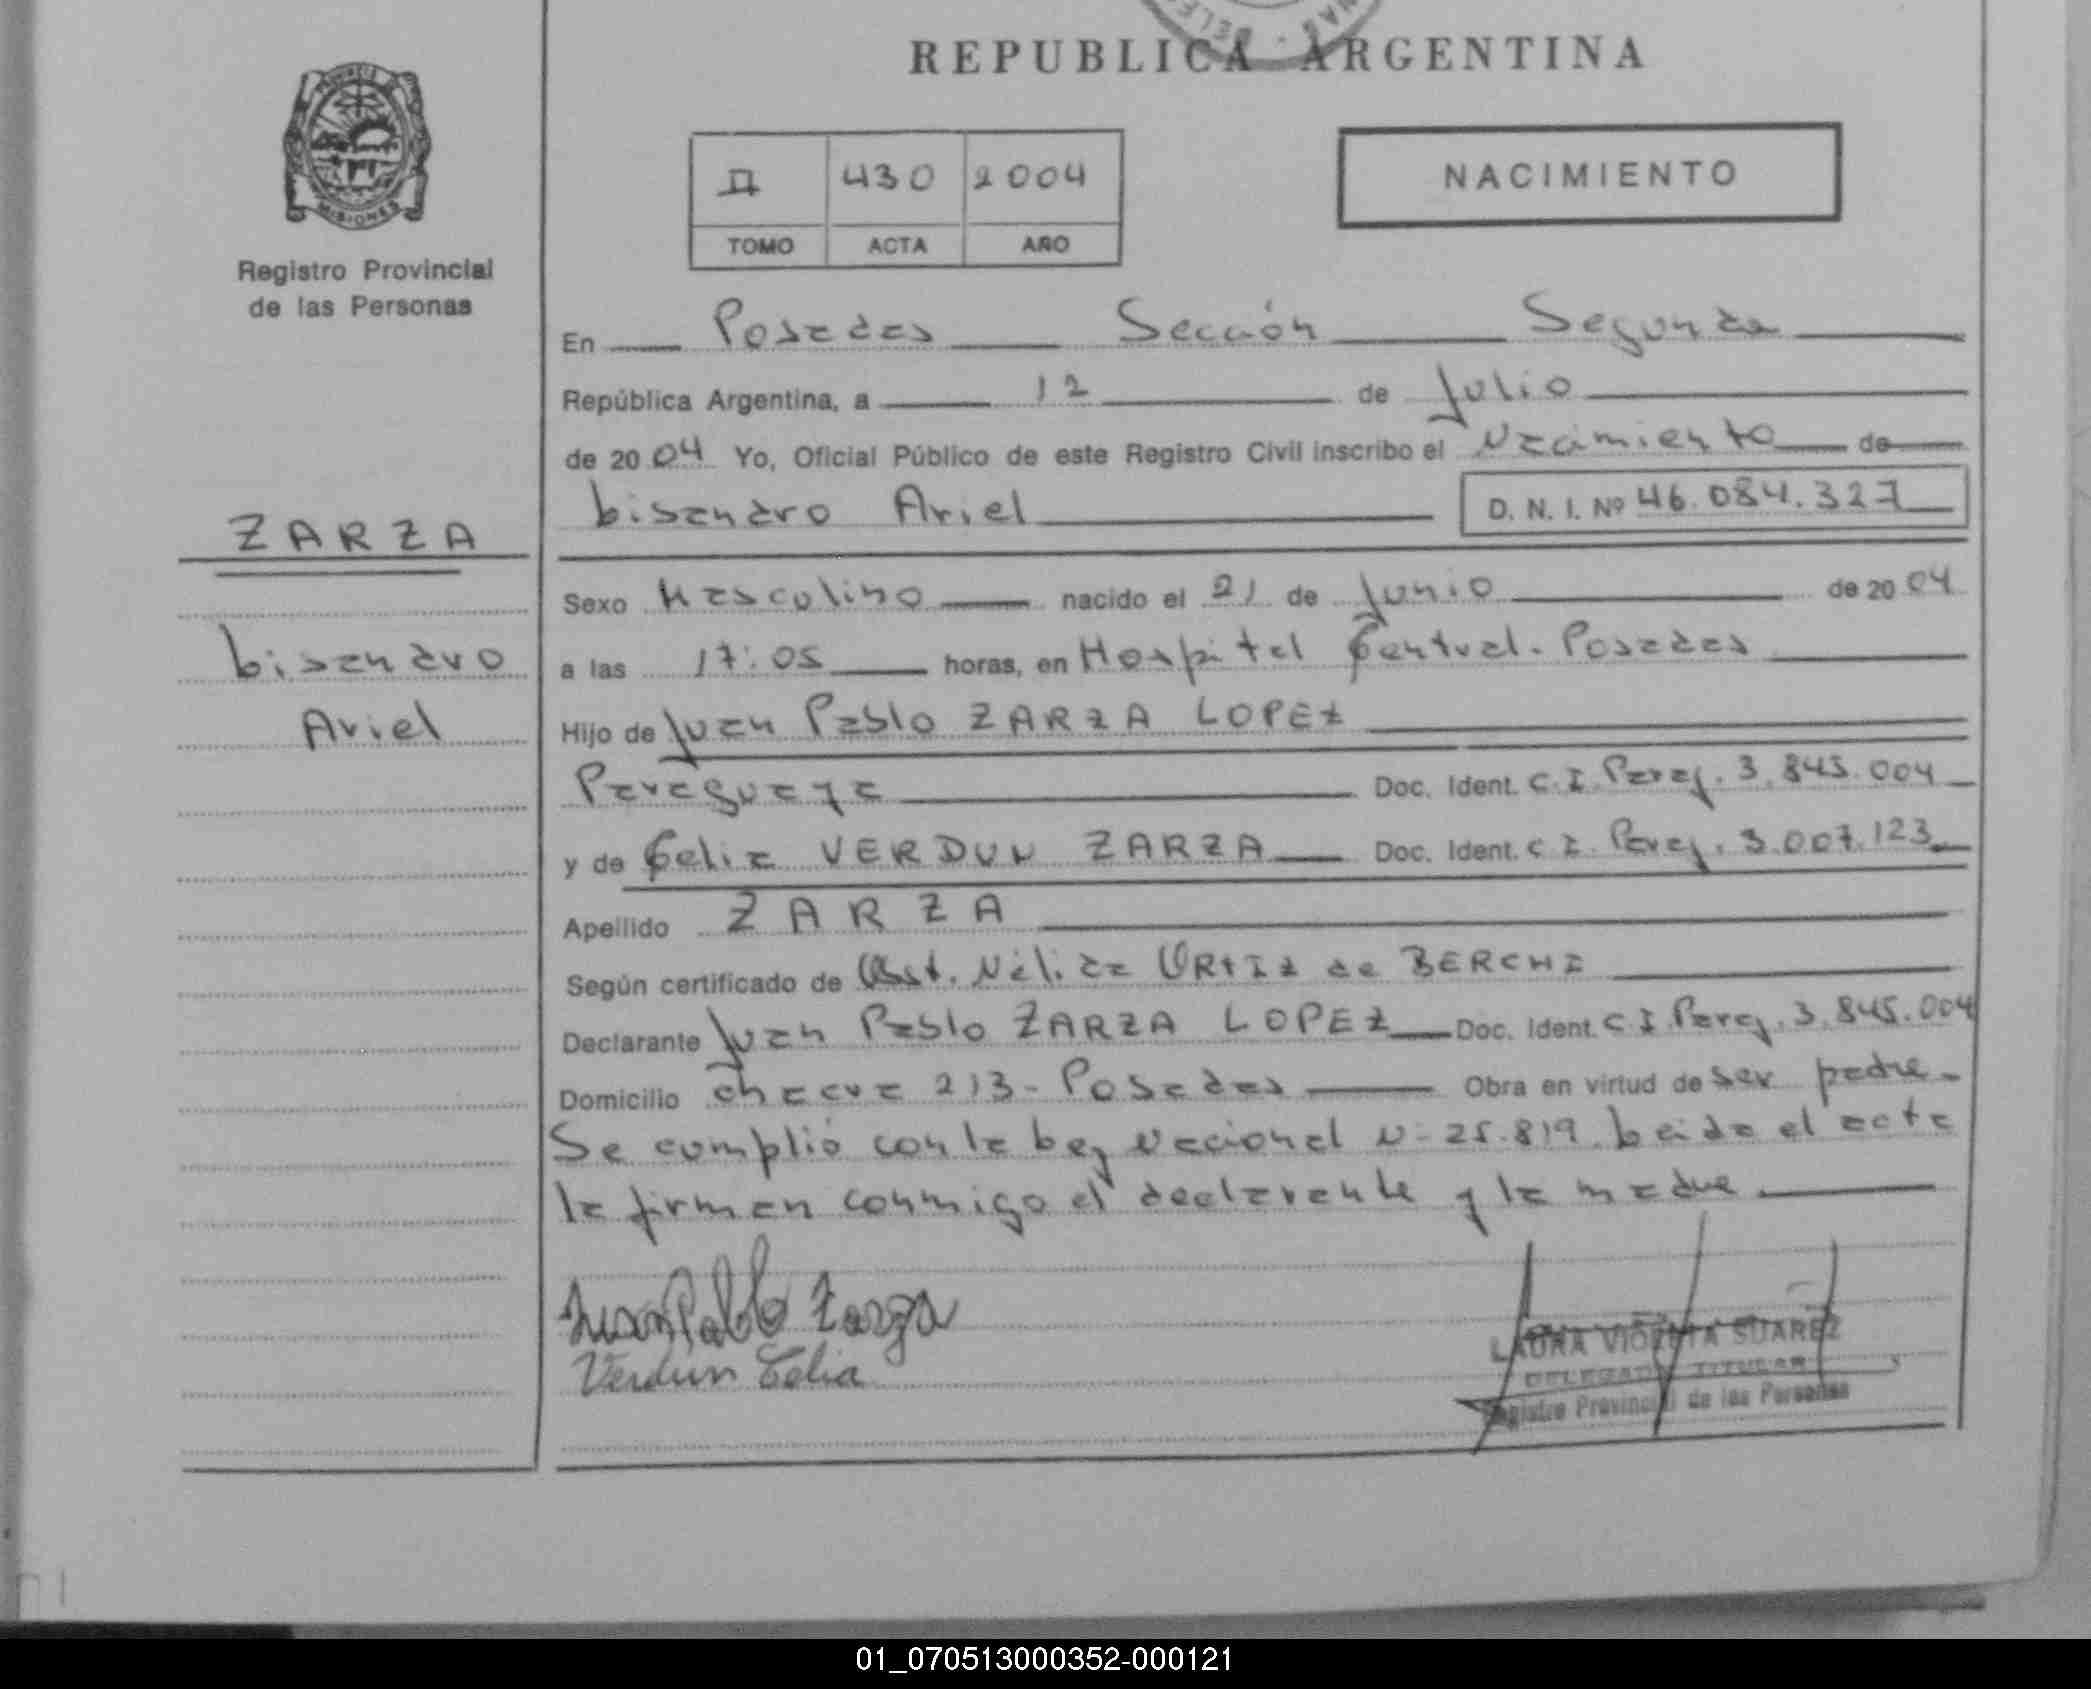 REPUBLICA ARGENTINA
PROVINCIA
MISIONES
Registro Provincial
de las Personas
II 430 2004
TOMO ACTA AÑO
NACIMIENTO
En Posadas Sección Segunda
República Argentina, a 12 de Julio
de 2004 Yo, Oficial Público de este Registro Civil inscribo el Nacimiento de
Lisandro Ariel D. N. I. Nº 46.084.327
ZARZA
Lisandro
Ariel
Sexo Masculino nacido el 21 de Junio de 2004
a las 17:05 horas, en Hospital Central. Posadas
Hijo de Juan Pablo ZARZA LOPEZ
Paraguaya Doc. Ident. C.I. Parag. 3.845.004
y de Celia VERDUN ZARZA Doc. Ident. C I. Parag. 3.007.123
Apellido ZARZA
Según certificado de Obst. Nélida ORTIZ de BERCHI
Declarante Juan Pablo ZARZA LOPEZ Doc. Ident. C I Parag. 3.845.004
Domicilio Chacra 213 - Posadas Obra en virtud de ser padre.
Se cumplió con la Ley Nacional N- 25.819. Leida el acta
la firman conmigo el declarante y la madre
Juan Pablo Zarza
Verdun Celia
LAURA VIOLETA SUAREZ
DELEGADA TITULAR
Registro Provincial de las Personas
01_070513000352-000121